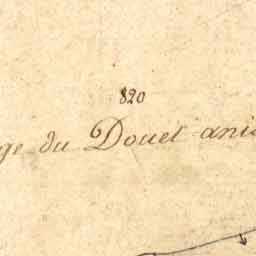 820
ge du Douet ani